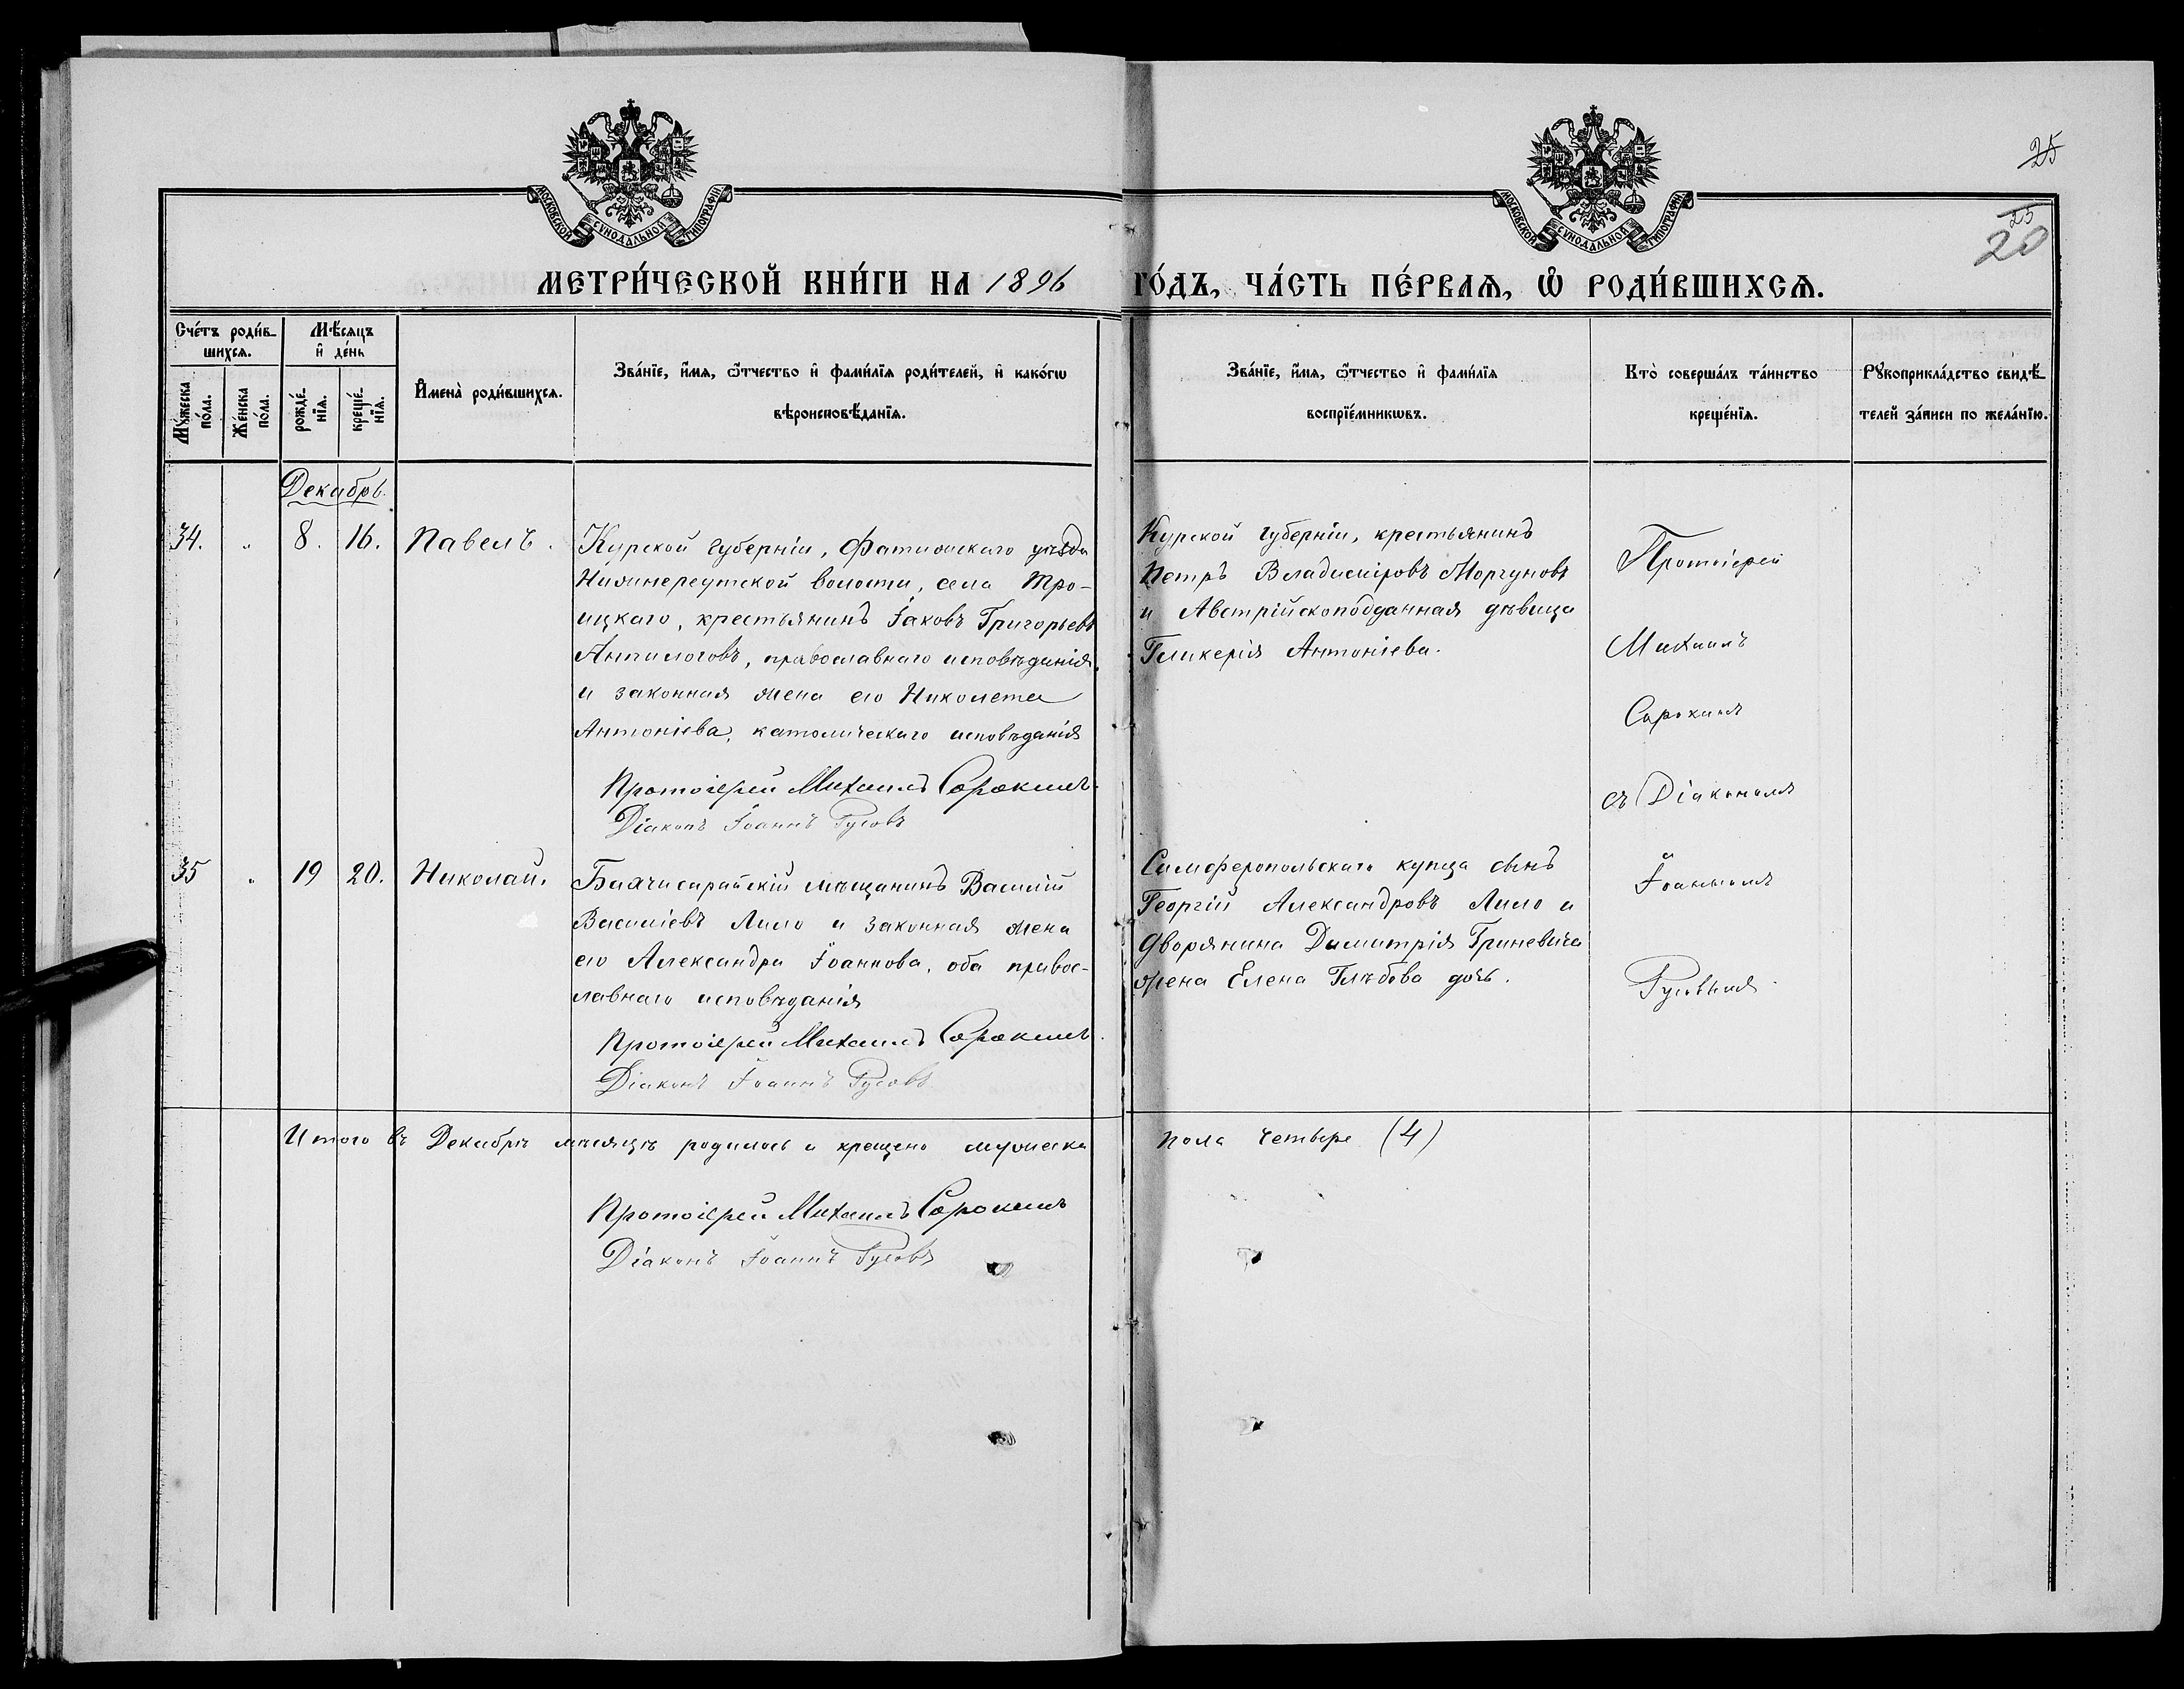 МОСКОВСКОЙ СѴНОДАЛЬНОЙ ТИПОГРАФІИ
МОСКОВСКОЙ СѴНОДАЛЬНОЙ ТИПОГРАФІИ
25
25
20
МЕТРИ́ЧЕСКОЙ КНИ́ГИ НА 1896 ГО́ДЪ, ЧА́СТЬ ПЕ́РВАѦ, Ѡ РОДИ́ВШИХСѦ.
Сче́тъ роди́в-
шихсѧ.
Мѣ́сяцъ
и҆ де́нь
Мꙋ́жеска по́ла.
Же́нска по́ла.
рожде́-
нїѧ.
креще́-
нїѧ.
И҆мена̀ роди́вшихсѧ.
Зва́нїе, и҆́мѧ, ѻ҆́тчество и҆ фами́лїѧ роди́телей, и҆ како́гѡ
вѣроисповѣ́данїѧ.
Зва́нїе, и҆́мѧ, ѻ҆́тчество и҆ фами́лїѧ
воспрїе́мникѡвъ.
Кто̀ соверша́лъ та́инство
креще́нїѧ.
Рꙋкоприкла́дство свидѣ́-
телей за́писи по жела́нїю.
Декабрь.
34. " 8. 16. Павелъ.
Курской губерніи, Фатижскаго уѣзда
Нижнереутской волости, села Тро-
ицкаго, крестьянинъ Іаковъ Григорьевъ
Анпилоговъ, православнаго исповѣданія
и законная жена его Николета
Антоніева, католическаго исповѣданія
Протоіерей Михаилъ Сорокинъ.
Діаконъ Іоаннъ Русовъ
Курской губерніи, крестьянинъ
Петръ Владиміровъ Моргуновъ
и Австрійскоподданная дѣвица
Гликерія Антоніева.
Протоіерей
Михаилъ
Сорокинъ
съ Діакономъ
Іоанномъ
Русовымъ.
35 " 19 20. Николай.
Бахчисарайскій мѣщанинъ Василій
Василіевъ Лило и законная жена
его Александра Іоаннова, оба правос-
лавнаго исповѣданія
Протоіерей Михаилъ Сорокинъ.
Діаконъ Іоаннъ Русовъ
Симферопольскаго купца сынъ
Георгій Александровъ Лило и
дворянина Димитрія Гриневича
жена Елена Глѣбова дочь.
Итого въ Декабрѣ мѣсяцѣ родилось и крещено мужеска пола четыре (4)
Протоіерей Михаилъ Сорокинъ
Діаконъ Іоаннъ Русовъ